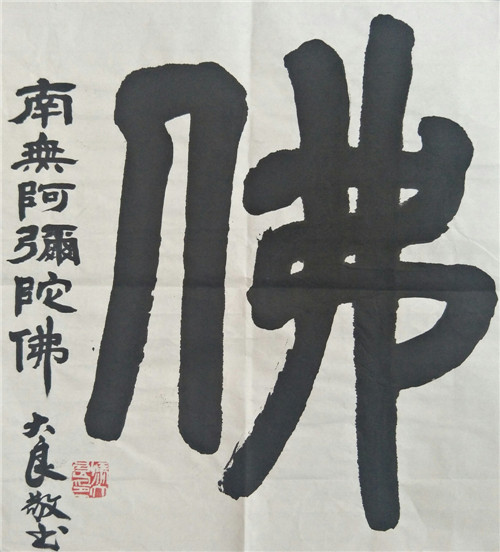 佛
南無阿彌陀佛
大良敬书